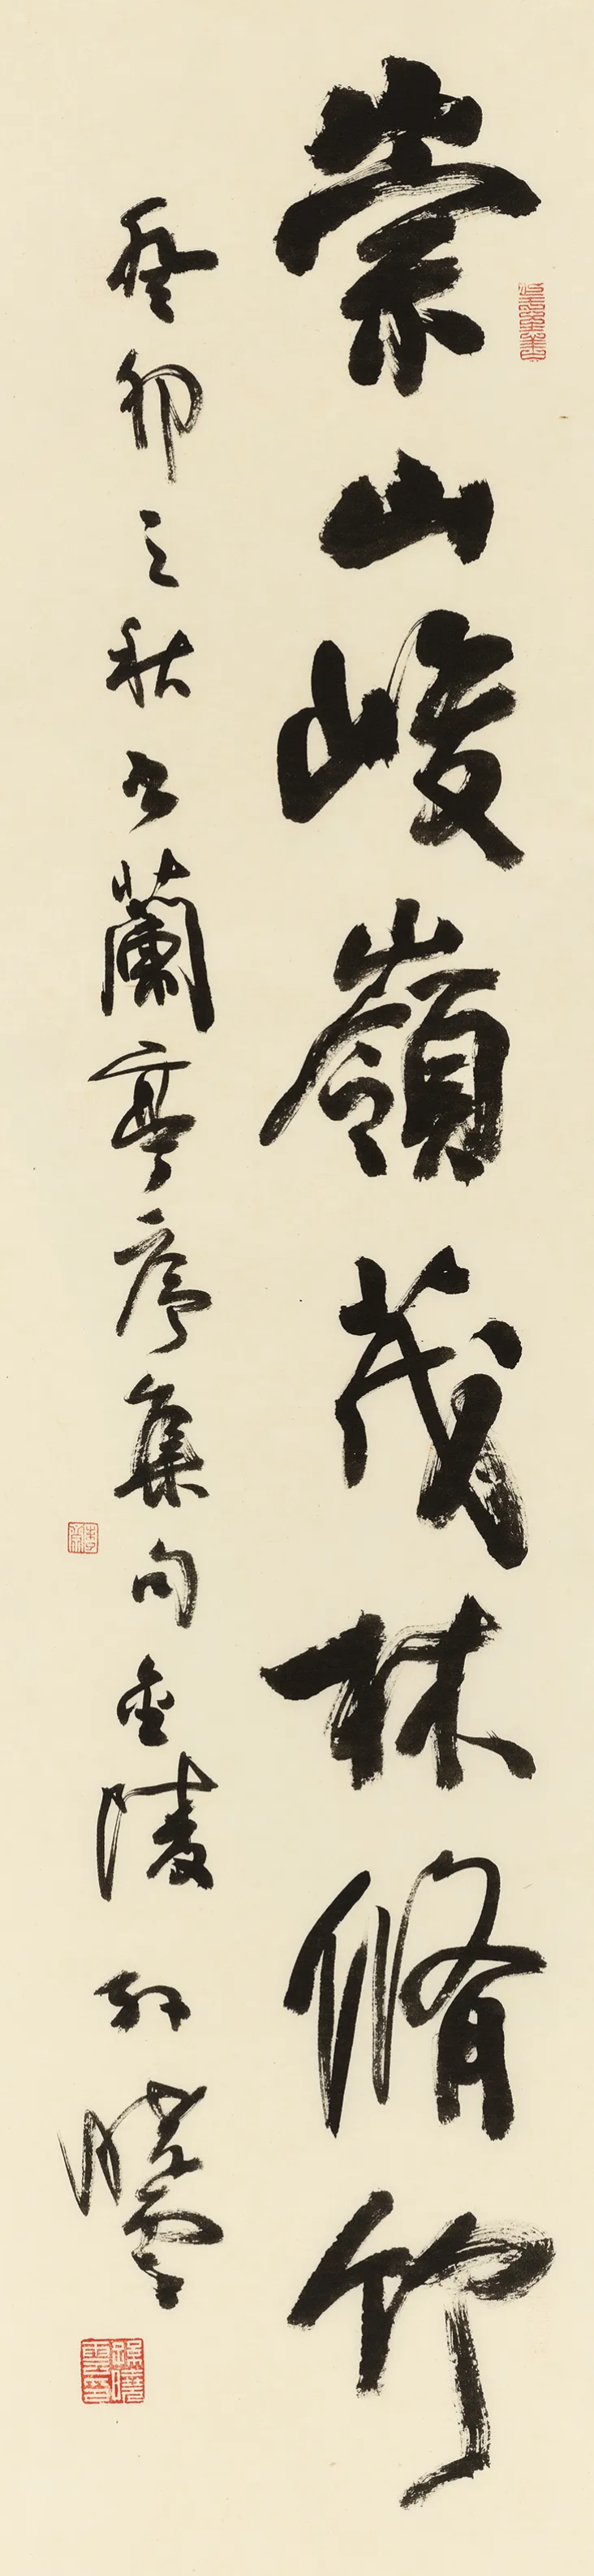 崇山峻嶺茂林脩竹
癸卯之秋书蘭亭序集句金陵孫曉雲
孫曉雲印